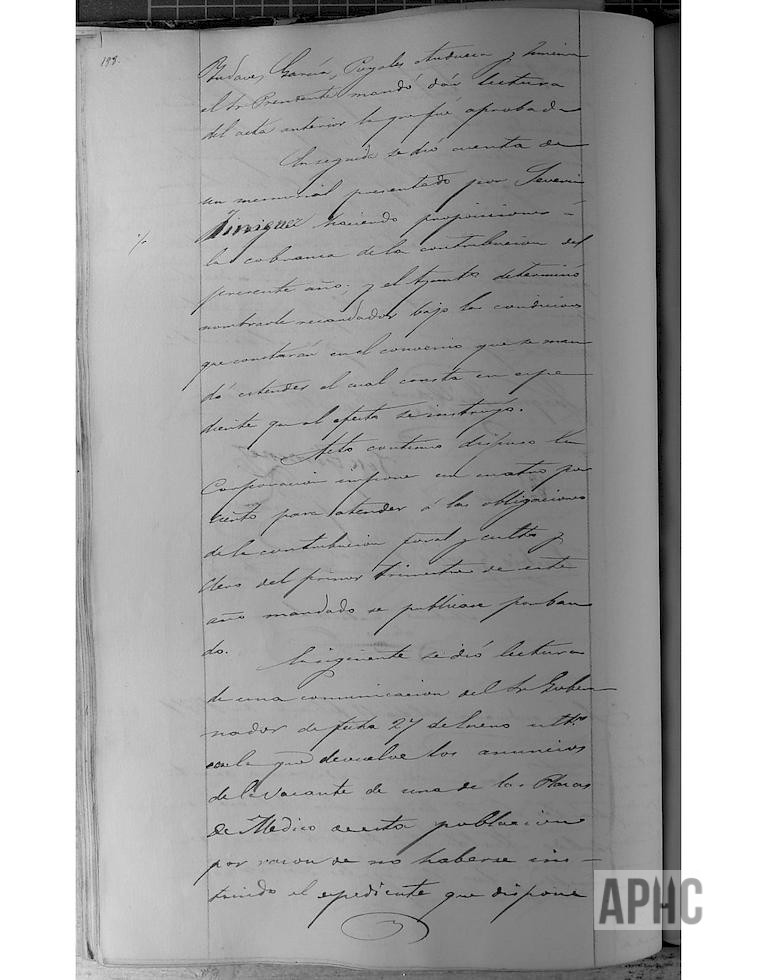 198.
García, Puyales Andueza y
el Sr. Presidente mandó dar lectura
del acta anterior la que fué aprobada
En seguida se dió cuenta de
un memorial presentado por Severin
Yiniguez haciendo proposiciones á
la cobranza de la contribucion del
presente año; y el Ayunto determinó
nombrarle recaudador bajo las condiciones
que constarán en el convenio que se man
dó estender el cual consta en espe
diente que al efecto se instruyó.
Acto continuo dispuso la
Corporacion impone un cuatro por
ciento para atender á las obligaciones
de la contribucion foral y culto y
clero del primer trimestre de este
año mandado se publicase por ban
do.
Insiguiente se dió lectura
de una comunicacion del Sr. Gober
nador de fecha 27 de Enero ultimo
con la que devuelve los anuncios
de la vacante de una de las Plazas
de Medico de esta poblacion
por razon de no haberse ins-
truido el espediente que dispone
APHC